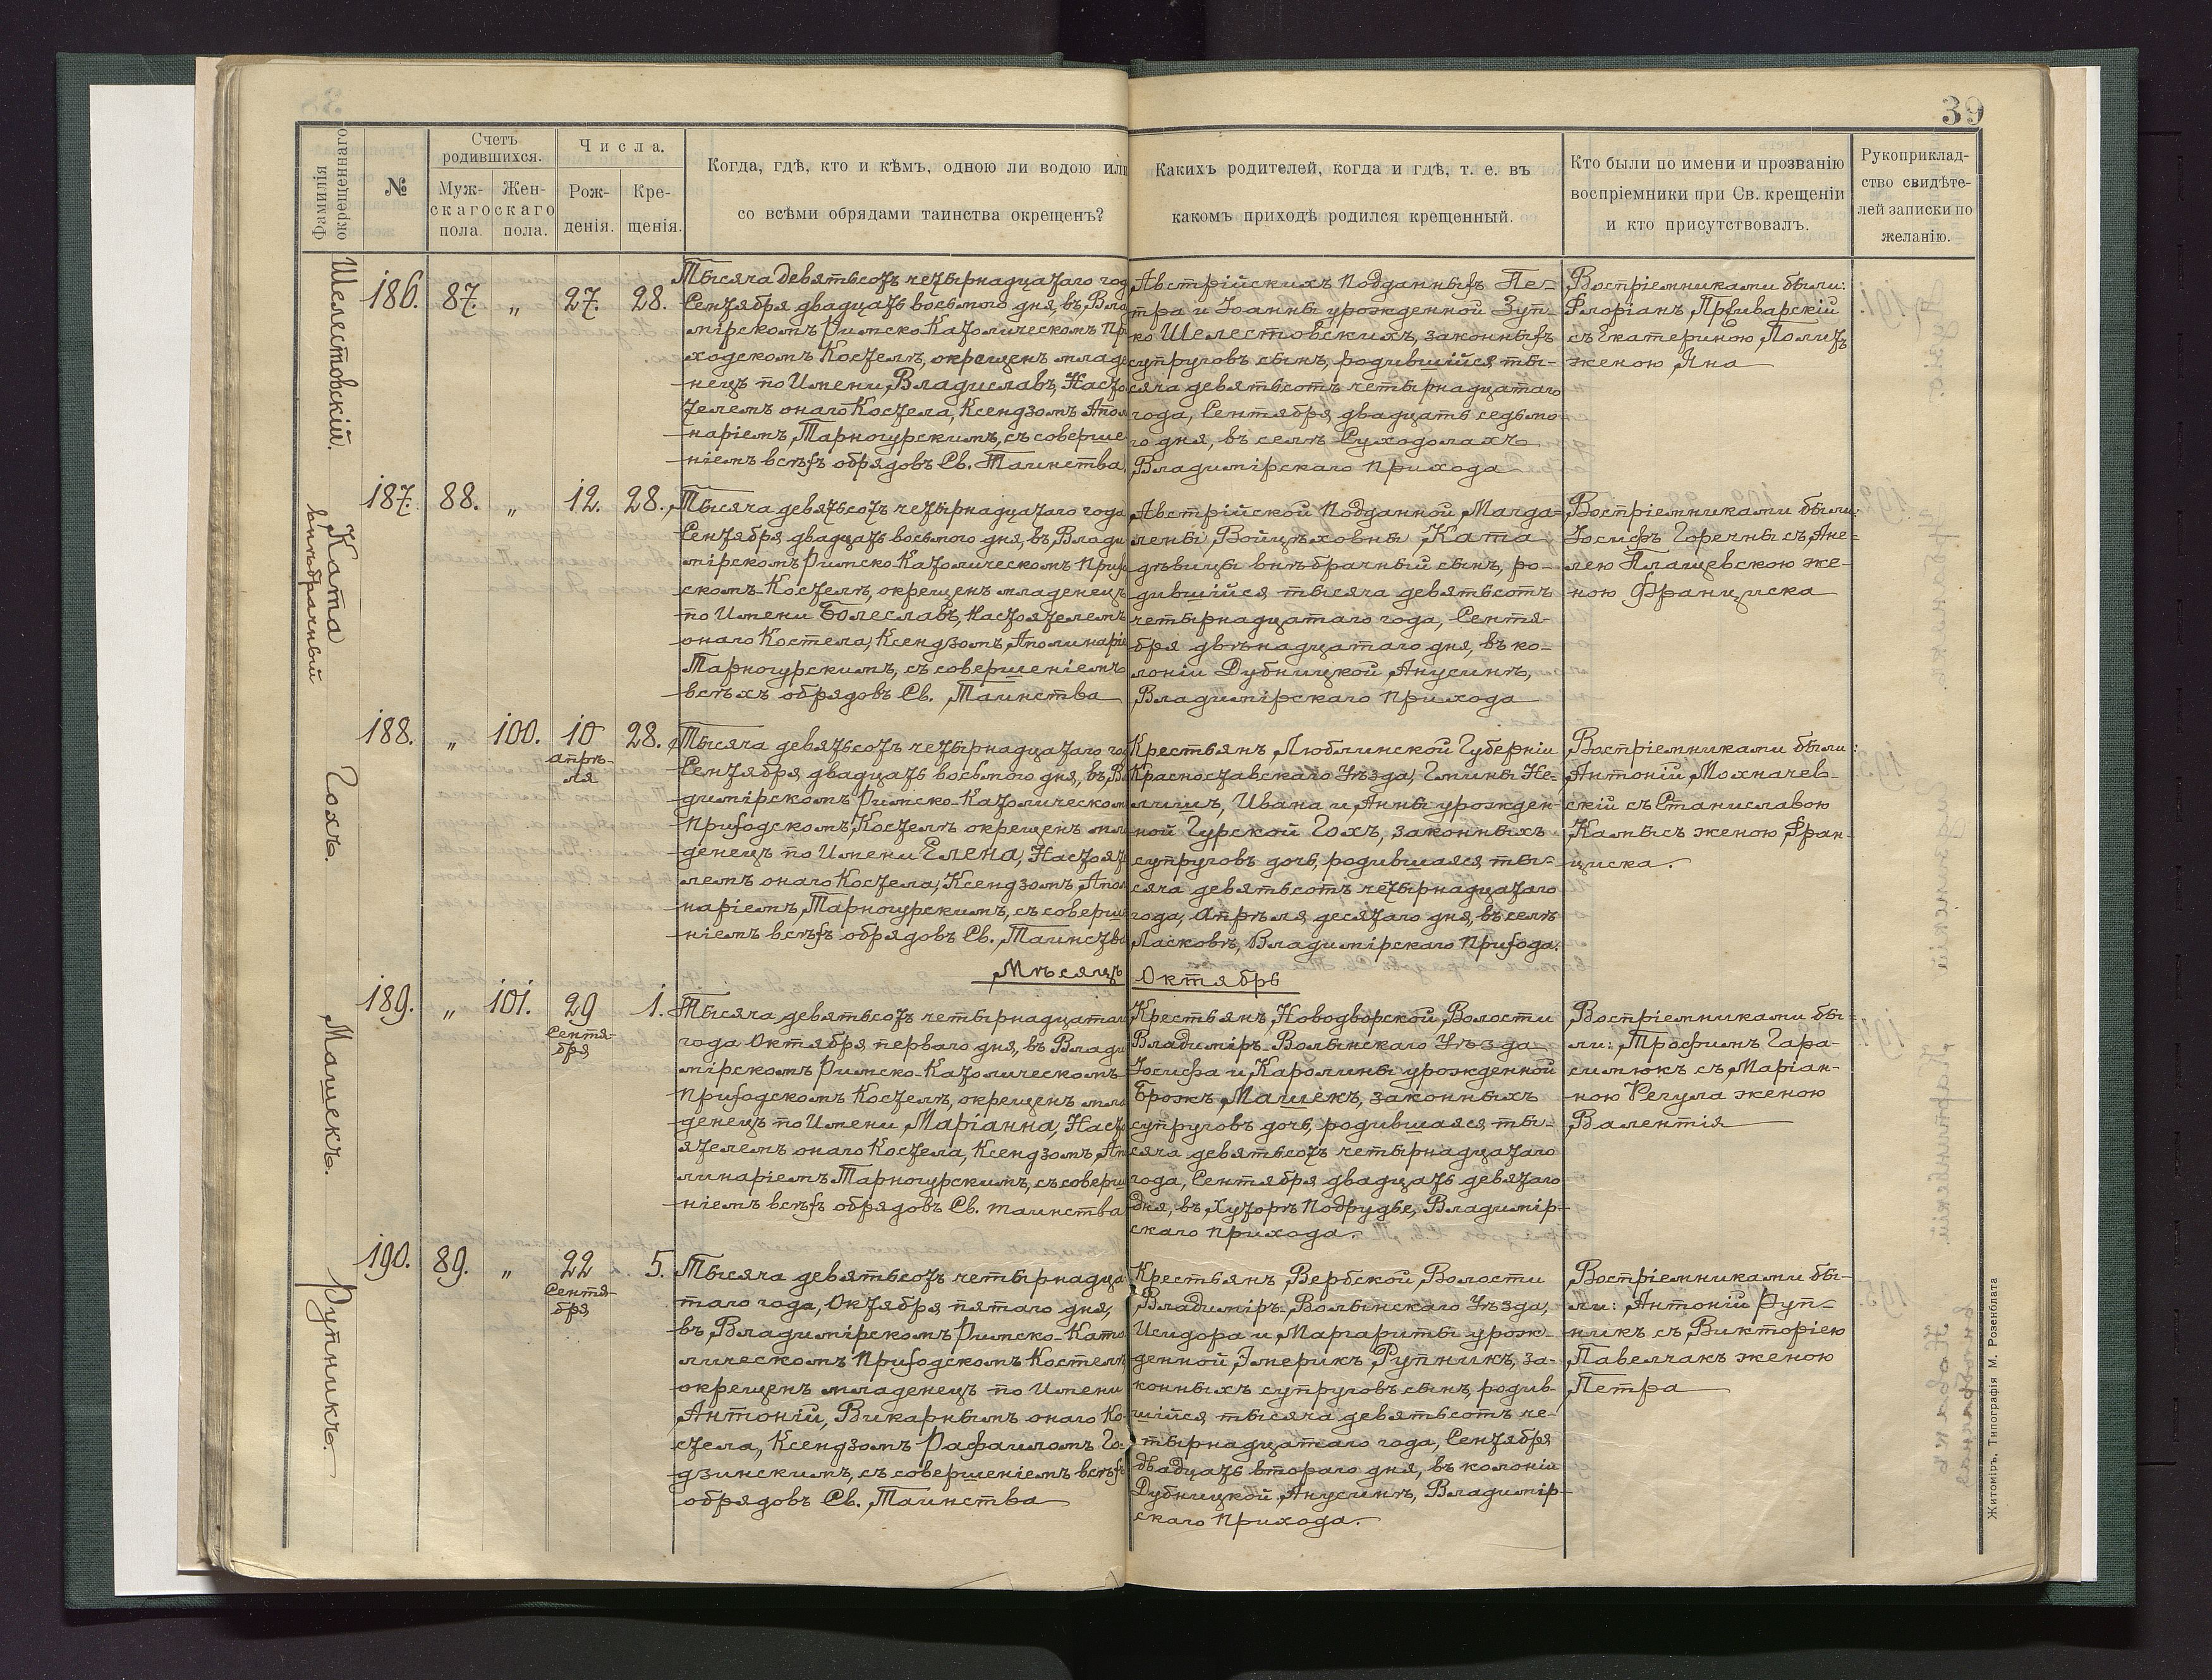 39
Фамилія окрещеннаго.
№
Счетъ родившихся.
Муж-
скаго
пола.
Жен-
скаго
пола.
Числа.
Рож-
денія.
Кре-
щенія.
Когда, гдѣ, кто и кѣмъ, одною ли водою или
со всѣми обрядами таинства окрещенъ?
Какихъ родителей, когда и гдѣ, т. е. въ
какомъ приходѣ родился крещенный.
Кто были по имени и прозванію
воспріемники при Св. крещеніи
и кто присутствовалъ.
Рукоприклад-
ство свидѣте-
лей записки по
желанію.
Шелестовскій.
186. 87. „ 27. 28.
Тысяча девятьсотъ четырнадцатаго год
Сентября двадцать восьмого дня, въ Вла
мірскомъ Римско-Католическомъ При
ходскомъ Костелѣ, окрещенъ младе
нецъ по Имени Владиславъ, Насто
телемъ онаго Костела, Ксендзомъ Апол
наріемъ Тарногурскимъ, съ соверше
ніемъ всѣхъ обрядовъ Св. Таинства.
Австрійскихъ Подданныхъ Пе-
тра и Іоанны урожденной Зуп-
ко Шелестовскихъ, законныхъ
супруговъ сынъ, родившійся ты-
сяча девятьсотъ четырнадцатаго
года, Сентября двадцать седьмо-
го дня, въ селѣ Суходолахъ
Владимірскаго прихода
Воспріемниками были:
Флоріанъ
съ Екатериною
женою Яна
Ката
внѣбрачный
187. 88. „ 12. 28.
Тысяча девятьсотъ четырнадцатаго года
Сентября двадцать восьмого дня, въ Влади
мірскомъ Римско-Католическомъ Прихо
скомъ Костелѣ, окрещенъ младенецъ
по Имени Болеславъ, Настоятелемъ
онаго Костела, Ксендзомъ Аполинаріе
Тарногурскимъ, съ совершеніемъ
всѣхъ обрядовъ Св. Таинства
Австрійской Подданной Магда-
лены Войцѣховны Ката
дѣвицы внѣбрачный сынъ, ро-
дившійся тысяча девятьсотъ
четырнадцатаго года, Сентя-
бря двѣнадцатаго дня, въ ко-
лоніи Дубницкой Анусинѣ,
Владимірскаго прихода
Воспріемниками были:
Іосифъ Горечны съ Ане-
лею Плащевскою же-
ною Франциска
Гохъ.
188. „ 100. 10 апрѣ-
ля 28.
Тысяча девятьсотъ четырнадцатаго го
Сентября двадцать восьмого дня, въ Вл
димірскомъ Римско-Католическом
Приходскомъ Костелѣ окрещенъ мла
денецъ по Имени Елена, Настоят
лемъ онаго Костела, Ксендзомъ Апол
наріемъ Тарногурскимъ, съ соверше
ніемъ всѣхъ обрядовъ Св. Таинства
Крестьянъ Люблинской Губерніи
Красноставскаго Уѣзда, Гмины Не-
Ивана и Анны урожден-
ной Гурской Гохъ, законныхъ
супруговъ дочь, родившаяся ты-
сяча девятьсотъ четырнадцатаго
года, Апрѣля десятаго дня, въ селѣ
Ласковѣ, Владимірскаго Прихода.
Воспріемниками были:
Антоній Мохначев-
скій съ Станиславою
Кампысъ женою Фран-
циска.
Мѣсяцъ Октябрь
Машекъ.
189. „ 101. 29 Сентя-
бря 1.
Тысяча девятьсотъ четырнадцатаго
года Октября перваго дня, въ Влади
мірскомъ Римско-Католическомъ
Приходскомъ Костелѣ, окрещенъ мла
денецъ по Имени Маріанна, Насто
ятелемъ онаго Костела, Ксендзомъ Ап
линаріемъ Тарногурскимъ, съ соверше
ніемъ всѣхъ обрядовъ Св. таинства
Крестьянъ Новодворской Волости
Владиміръ-Волынскаго Уѣзда
Іосифа и Каролины урожденной
Брожъ Машекъ, законныхъ
супруговъ дочь, родившаяся ты-
сяча девятьсотъ четырнадцатаго
года, Сентября двадцать девятаго
дня, въ Хуторѣ Подрудье, Владимір-
скаго прихода.
Воспріемниками бы-
ли: Трофимъ Гара-
симюкъ съ Маріан-
ною Регула женою
Валентія
Рупникъ.
190. 89. „ 22 Сентя-
бря 5.
Тысяча девятьсотъ четырнадца
таго года, Октября пятаго дня,
въ Владимірскомъ Римско-Като
лическомъ Приходскомъ Костелѣ
окрещенъ младенецъ по Имени
Антоній, Викарнымъ онаго Ко-
стела, Ксендзомъ Рафаиломъ Го-
дзинскимъ, съ совершеніемъ всѣхъ
обрядовъ Св. Таинства
Крестьянъ Вербской Волости
Владиміръ-Волынскаго Уѣзда,
Исидора и Маргариты урож-
денной Эмерикъ Рупникъ, за-
конныхъ супруговъ сынъ, родив-
шійся тысяча девятьсотъ че-
тырнадцатаго года, Сентября
двадцать второго дня, въ колоніи
Дубницкой Анусинѣ, Владимір-
скаго прихода.
Воспріемниками бы-
ли: Антоній Руп-
никъ съ Викторіею
Павелчакъ женою
Петра
Житоміръ. Типографія М. Розенблата